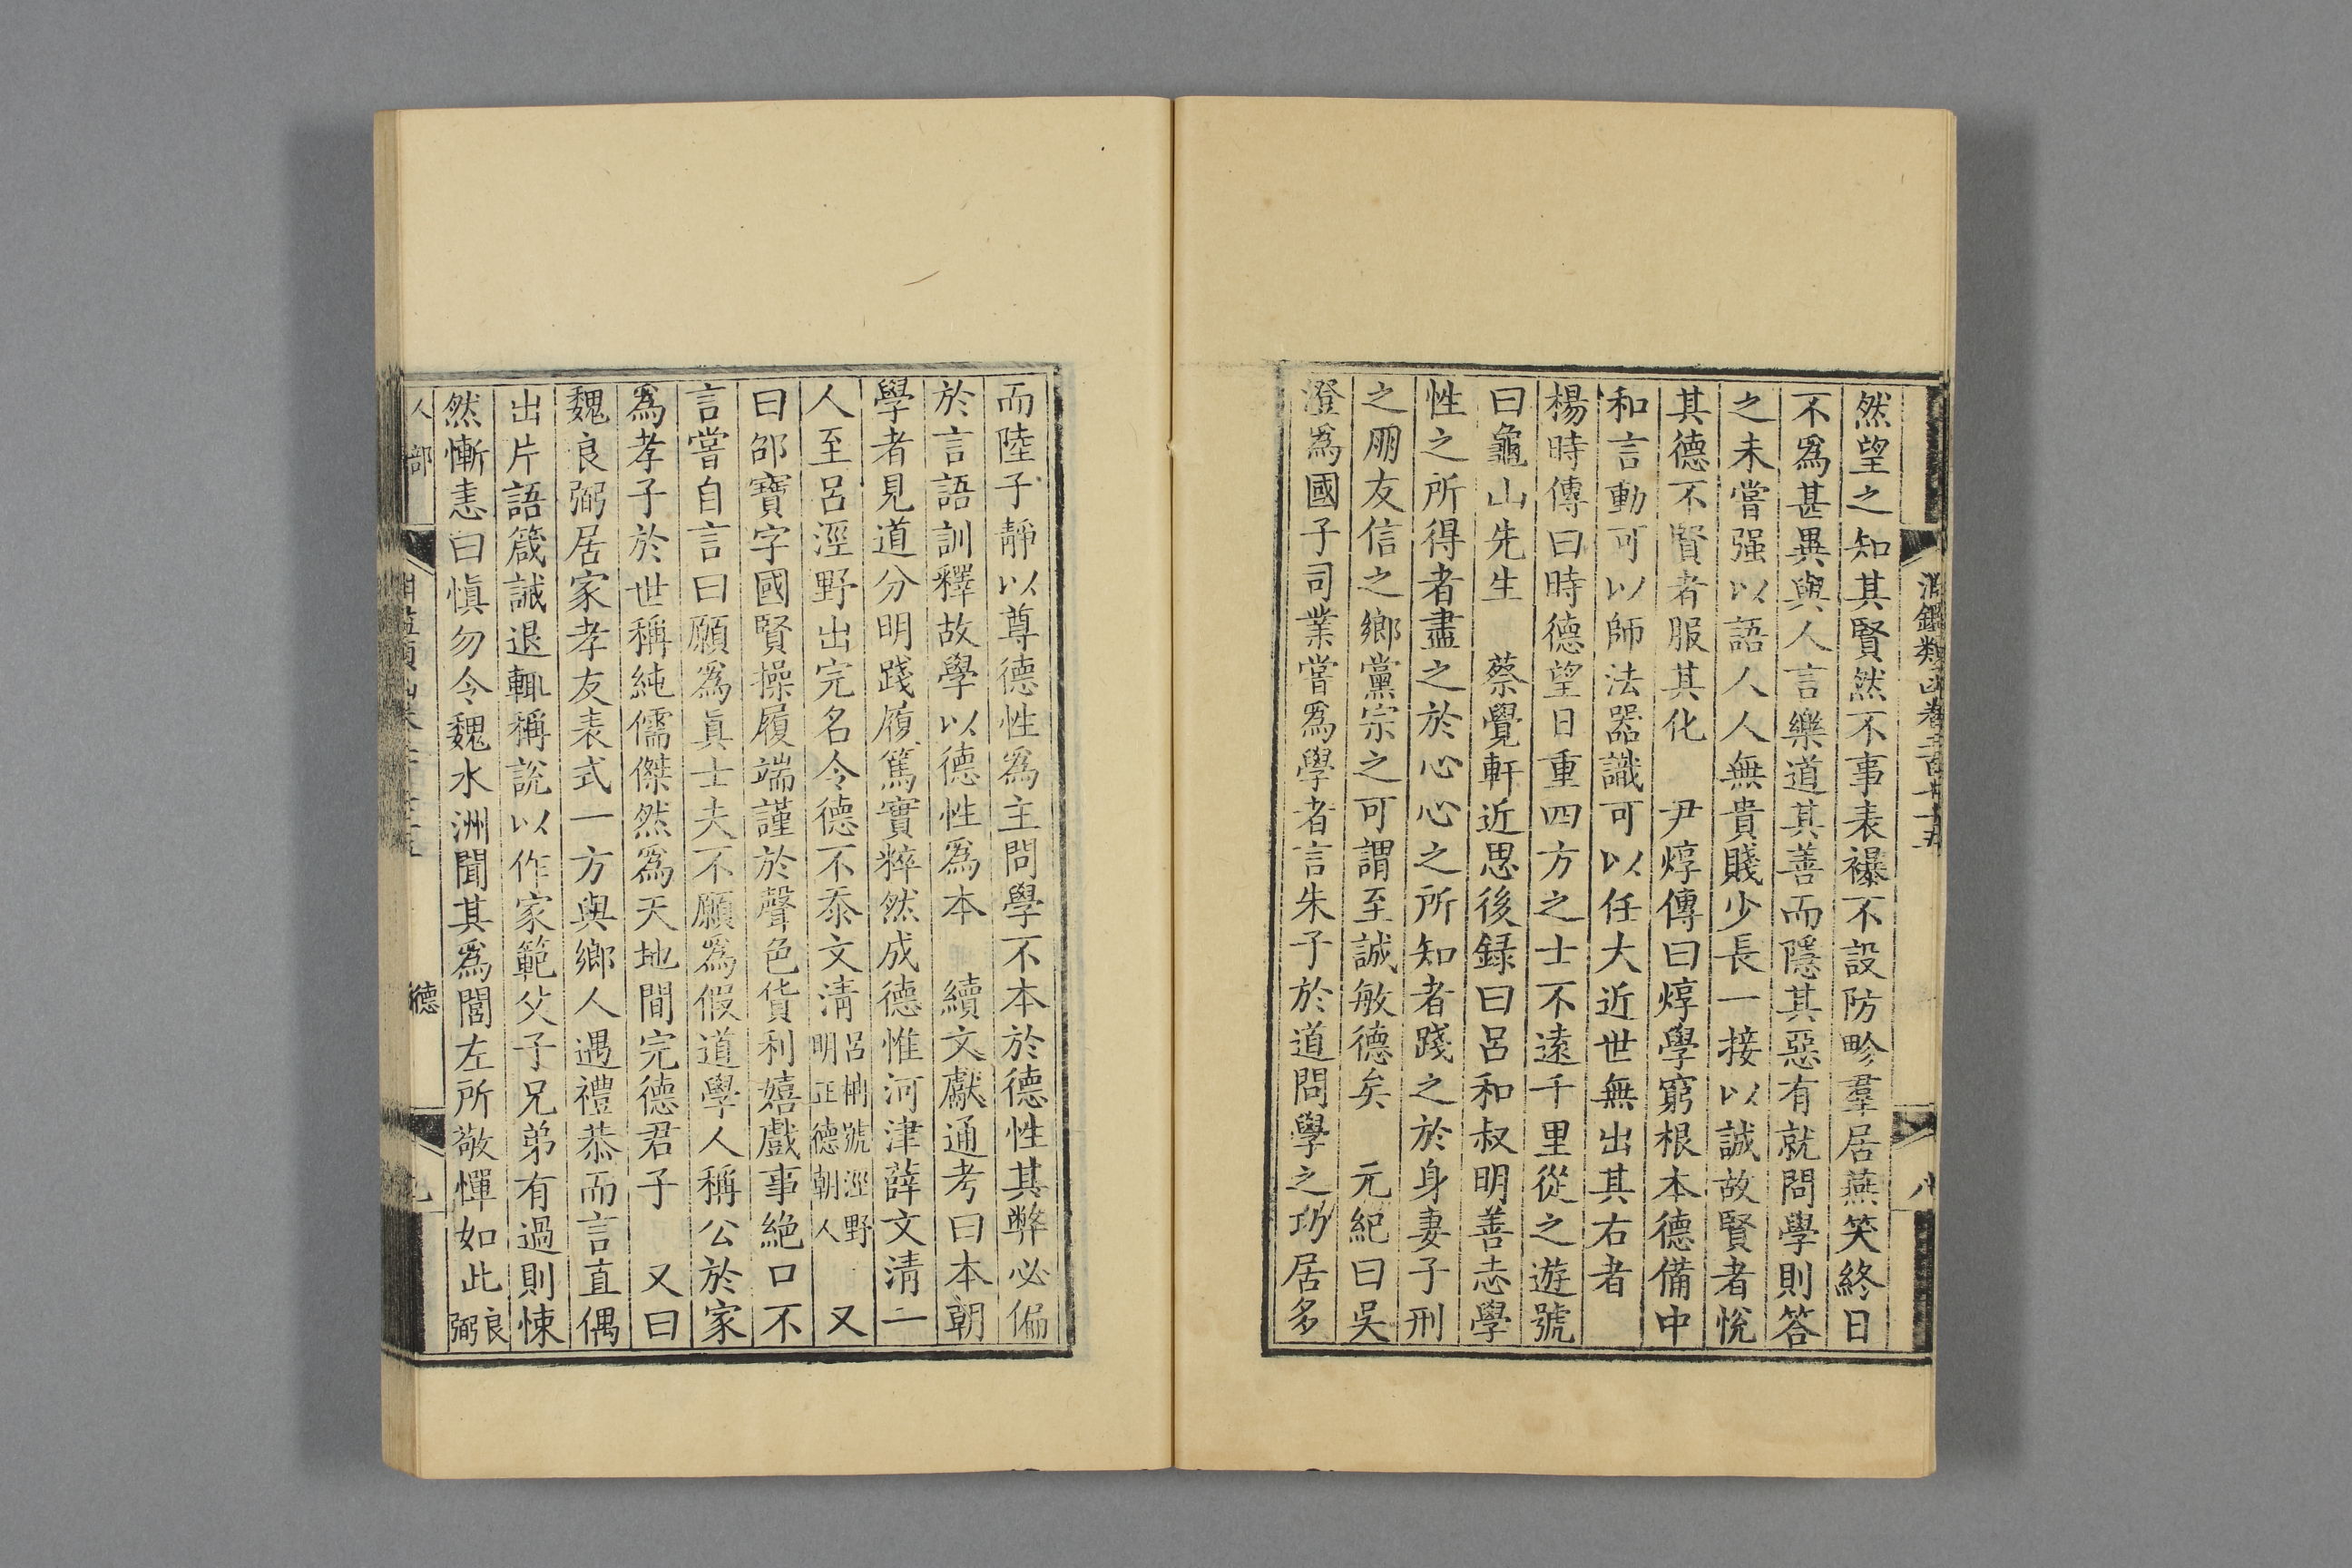 淵鑑類函卷二百七十五
八
然望之知其賢然不事表襮不設防畛羣居燕笑終日
不爲甚異與人言樂道其善而隱其惡有就問學則答
之未嘗强以語人人無貴賤少長一接以誠故賢者恱
其德不賢者服其化　尹焞傳曰焞學窮根本德備中
和言動可以師法器識可以任大近世無出其右者
楊時傳曰時德望日重四方之士不遠千里從之遊號
曰龜山先生　蔡覺軒近思後録曰呂和叔明善志學
性之所得者盡之於心心之所知者踐之於身妻子刑
之朋友信之鄉黨宗之可謂至誠敏德矣　元紀曰吳
澄爲國子司業嘗爲學者言朱子於道問學之功居多
而陸子靜以尊德性爲主問學不本於德性其弊必偏
於言語訓釋故學以德性爲本　續文獻通考曰本朝
學者見道分明踐履篤實粹然成德惟河津薛文清一
人至呂涇野出完名令德不忝文清呂柟號涇野明正德朝人　又
曰邵寶字國賢操履端謹於聲色貨利嬉戲事絶口不
言嘗自言曰願爲眞士夫不願爲假道學人稱公於家
爲孝子於世稱純儒傑然爲天地間完德君子　又曰
魏良弼居家孝友表式一方與鄉人遇禮恭而言直偶
出片語箴誡退輒稱說以作家範父子兄弟有過則悚
然慚恚曰愼勿令魏水洲聞其爲閭左所敬憚如此良弼
人部
德